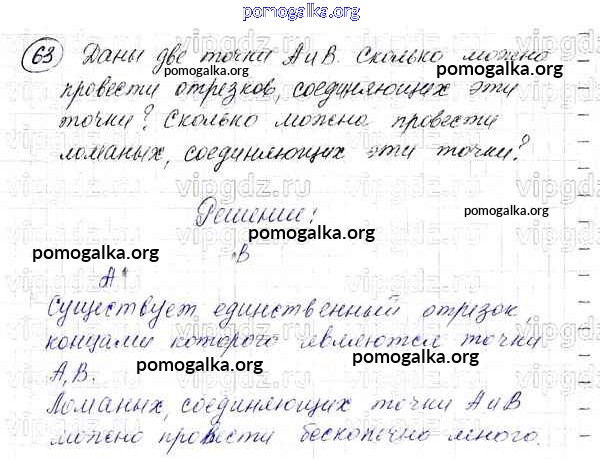 pomogalka.org
63 Даны две точки А и В. Сколько можно
pomogalka.org pomogalka.org
провести отрезков, соединяющих эти
pomogalka.org
точки? Сколько можно провести
ломаных, соединяющих эти точки?
vipgdz.ru vipgdz.ru vipgdz.ru
Решение:
pomogalka.org
pomogalka.org pomogalka.org
В
А
Существует единственный отрезок,
концами которого являются точки
pomogalka.org pomogalka.org
А, В.
Ломаных, соединяющих точки А и В
pomogalka.org
можно провести бесконечно много.